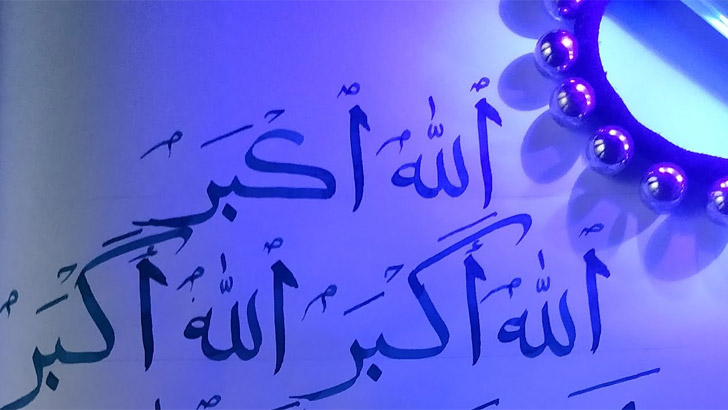 اَللّٰهُ اَكْبَرُ
اَللّٰهُ أَكْبَرُ اَللّٰهُ أَكْبَرُ